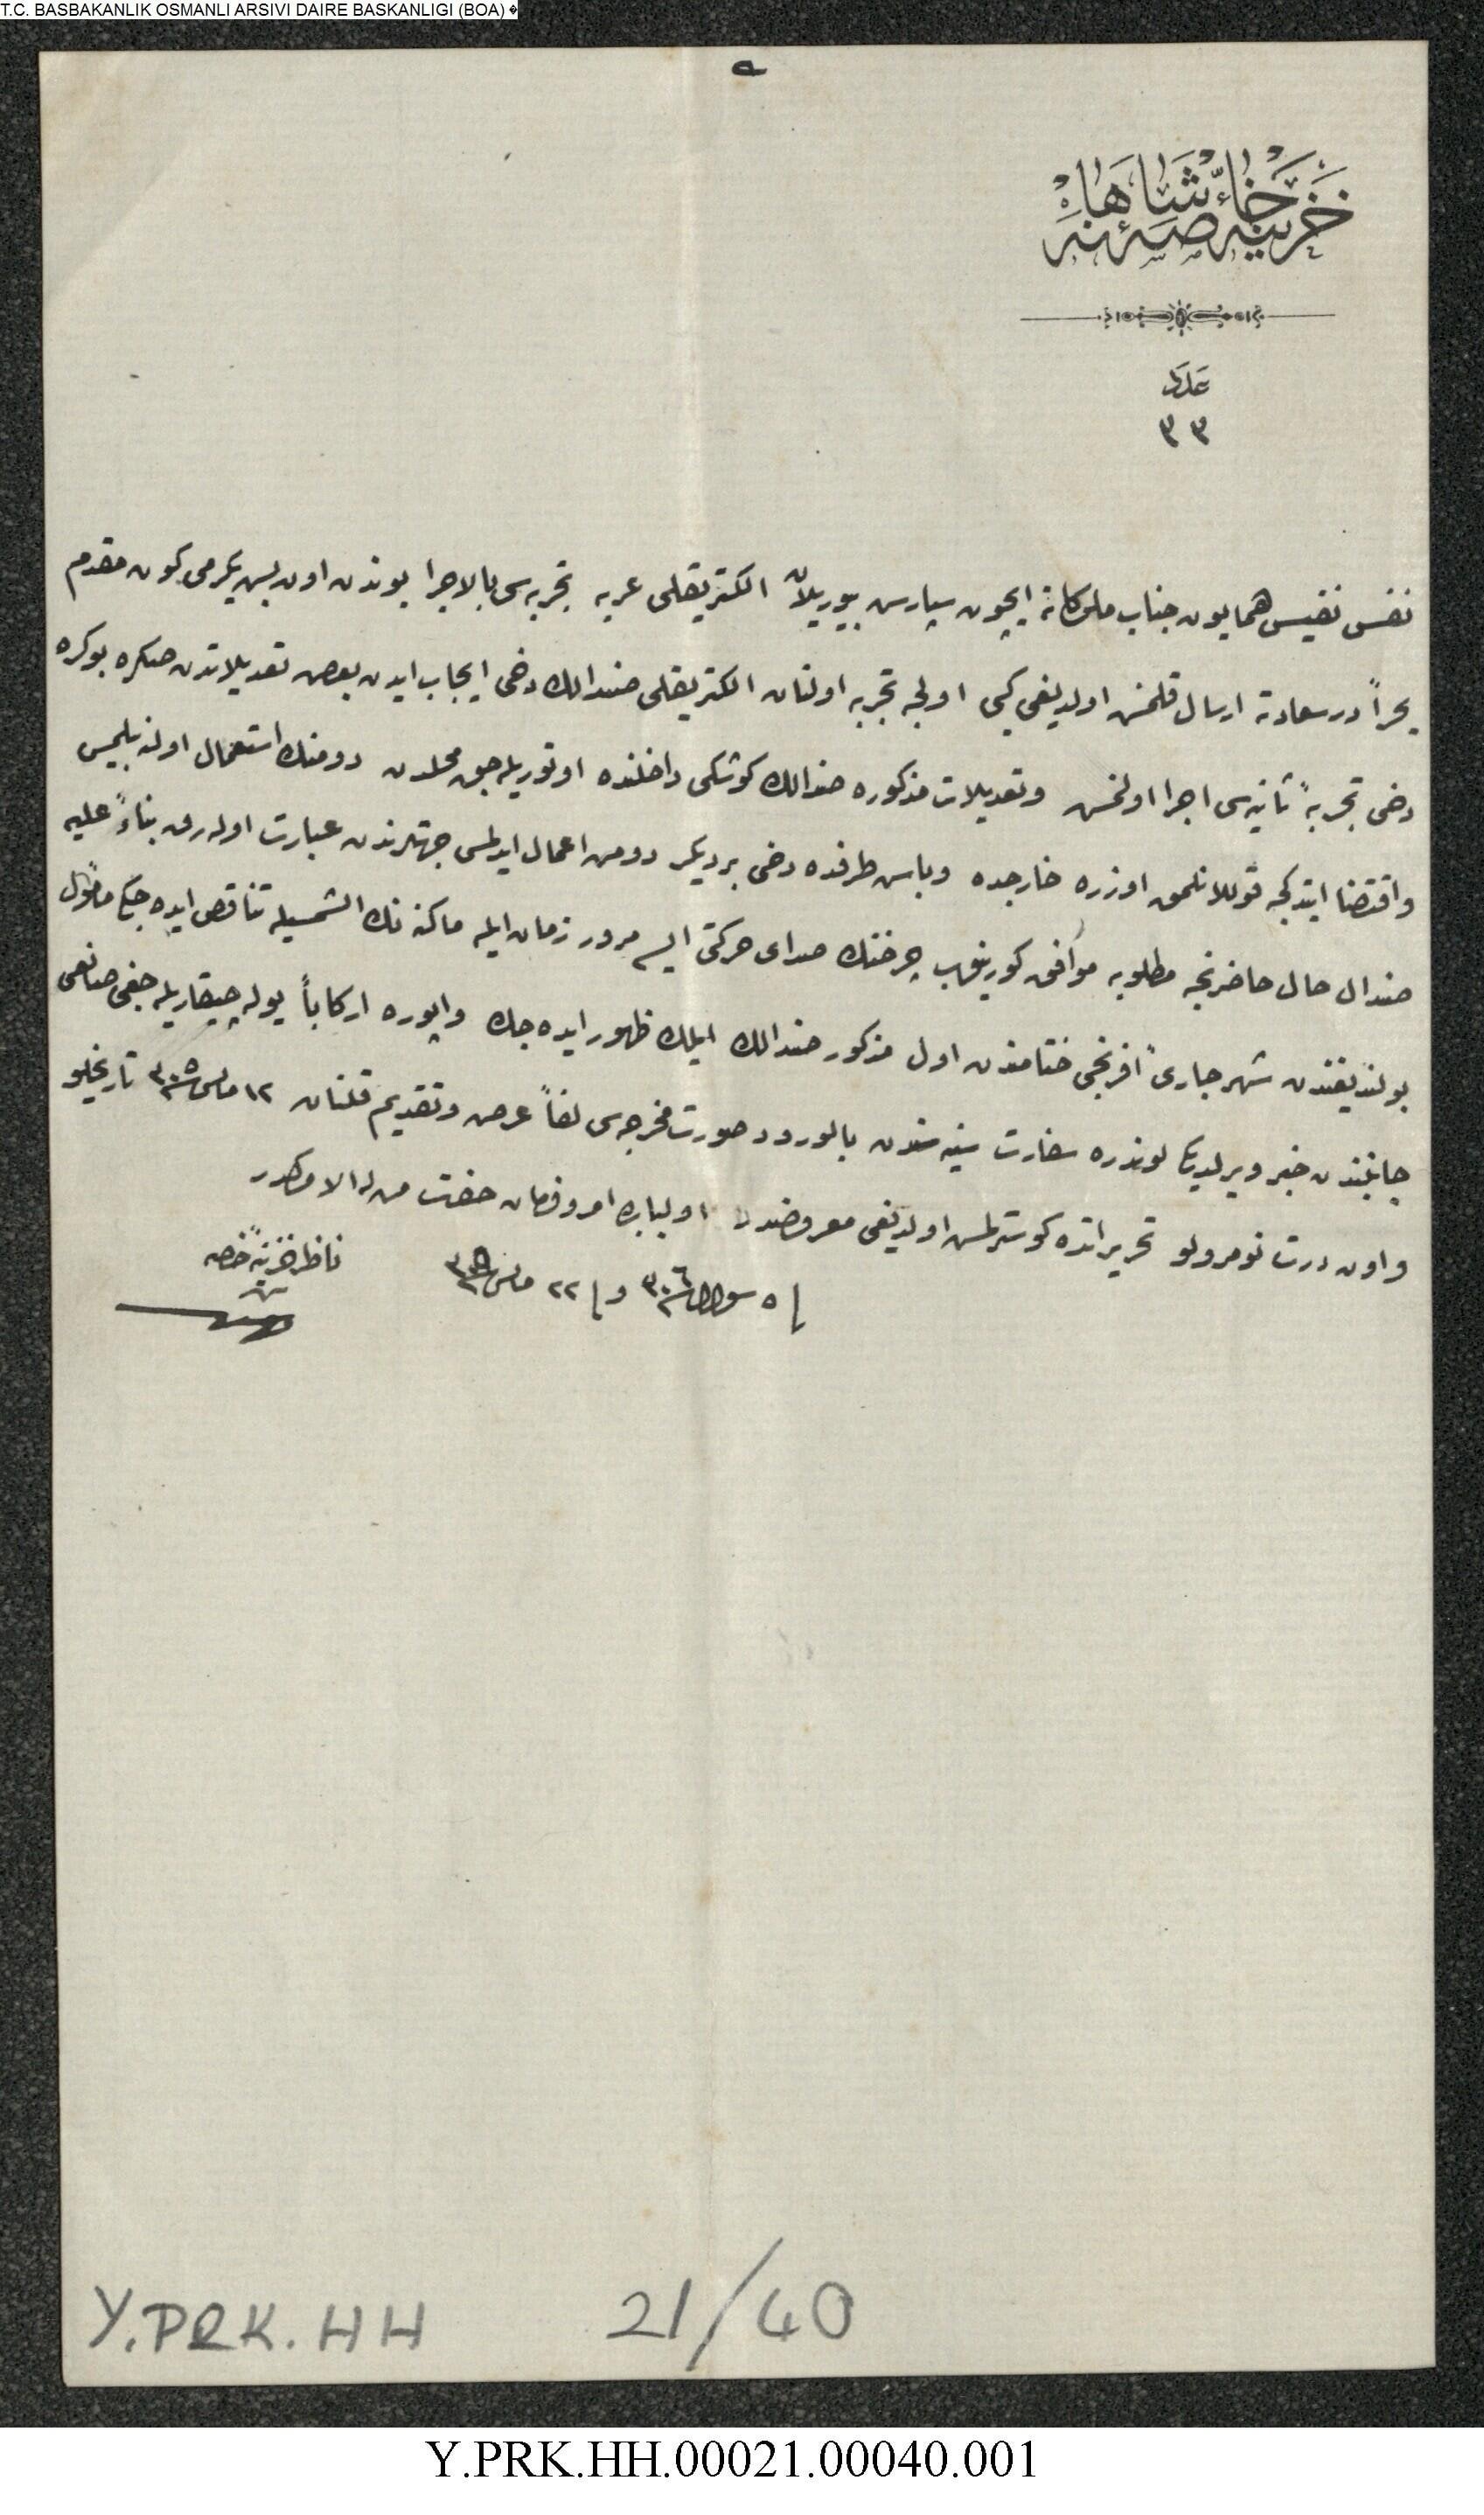 T.C. BASBAKANLIK OSMANLI ARSIVI DAIRE BASKANLIGI (BOA)
خزينهٔ خاصهٔ شاهانه
عدد
٣٣
نفس نفيس همايون جناب ملوكانه ايچون سپارش بيوريلان الكتريقلى عربه تجربه‌سى بالاجرا بوندن اون بش يكرمى كون مقدم
بحراً درسعادته ارسال قلنمش اولديغى كبى اولجه تجربه اولنان الكتريقلى صندالك دخى ايجاب ايدن بعض تعديلاتدن صكره بوكره
دخى تجربهٔ ثانيه‌سى اجرا اولنمش وتعديلات مذكوره صندالك كوشكى داخلنده اوتوريله‌جق محلدن دومنك استعمال اولنه‌بيلمسى
واقتضا ايتدكجه قوللانلمق اوزره خارجده وباش طرفده دخى بر ديكر دومن اعمال ايدلمسى جهتلرندن عبارت اوله‌رق بناءً عليه
صندال حال حاضرنجه مطلوبه موافق كورينوب چرخنك صداى حركتى ايسه مرور زمان ايله ماكنه‌نك آلشمسيله تناقص ايده‌جكى مأمول
بولنديغندن شهر جارئ افرنجى ختامندن اول مذكور صندالك ايلك ظهور ايده‌جك واپوره اركاباً يوله چيقاريله‌جغى صانعى
جانبندن خبر ويرلديكى لوندره سفارت سنيه‌سندن بالورود صورت مخرجه‌سى لفاً عرض وتقديم قلنان ١٢ مارس ٣٠٥ تاريخلو
واون درت نومرولو تحريراتده كوسترلمش اولديغى معروضدر اولبابده امر وفرمان حضرت من له الامركدر
فى ٥ شعبان ٣٠٦ و فى ٢٢ مارس ٣٠٥
ناظر خزينهٔ خاصه
Y.PRK.HH 21/40
Y.PRK.HH.00021.00040.001